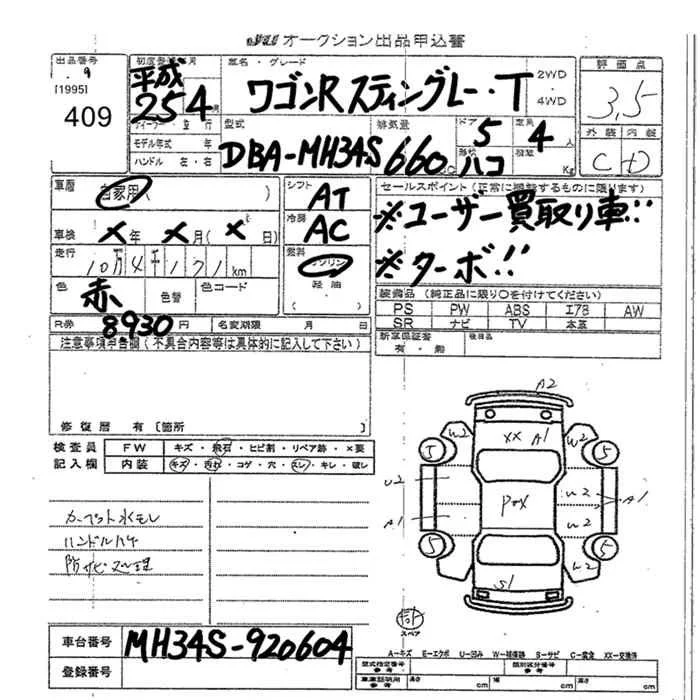 オークション出品申込書
出品番号
9
[1995]
409
初度登録年月
平成
25 4 月
車名・グレード
ワゴンR スティングレー・T
2WD
・
4WD
評価点
3.5
外装 内装
C D
ディーラー・並行
モデル年式 年
ハンドル 左・右
型式
DBA-MH34S
排気量
660
ドア
5
形状
ハコ
定員
4 人
積載
Kg
車歴
自家用( )
シフト
AT
セールスポイント(正常に機能するものに限ります)
※ユーザー買取り車!!
※ターボ!!
車検 X 年 X 月( X 日)
冷房
AC
走行
10万4千171km
燃料
ガソリン
軽油
色
赤
色替
色コード
装備品(純正品に限り○を付けてください)
PS PW ABS エアB AW
SR ナビ TV 本革
R券 8930円 名変期限 月 日
新車保証書
有・無
後日品
注意事項申告欄(不具合内容等は具体的に記入して下さい)
修復歴 有〔箇所 〕
検査員
記入欄
FW キズ・飛石・ヒビ割・リペア跡・×要
内装 キズ・汚れ・コゲ・穴・スレ・キレ・破レ
カーペット水モレ
ハンドルハゲ
防サビ処理
A2
XX A1
W2
W2
5
5
U2
A1
Pox
U2
W2
A1
5
5
W2
S1
スペア
A-キズ E-エクボ U-凹み W-補修跡 S-サビ C-腐食 XX-交換済
車台番号
MH34S-920604
登録番号
型式指定番号
参考
類別区分番号
参考
車庫証明用
参考
長さ cm
幅 cm
高さ cm